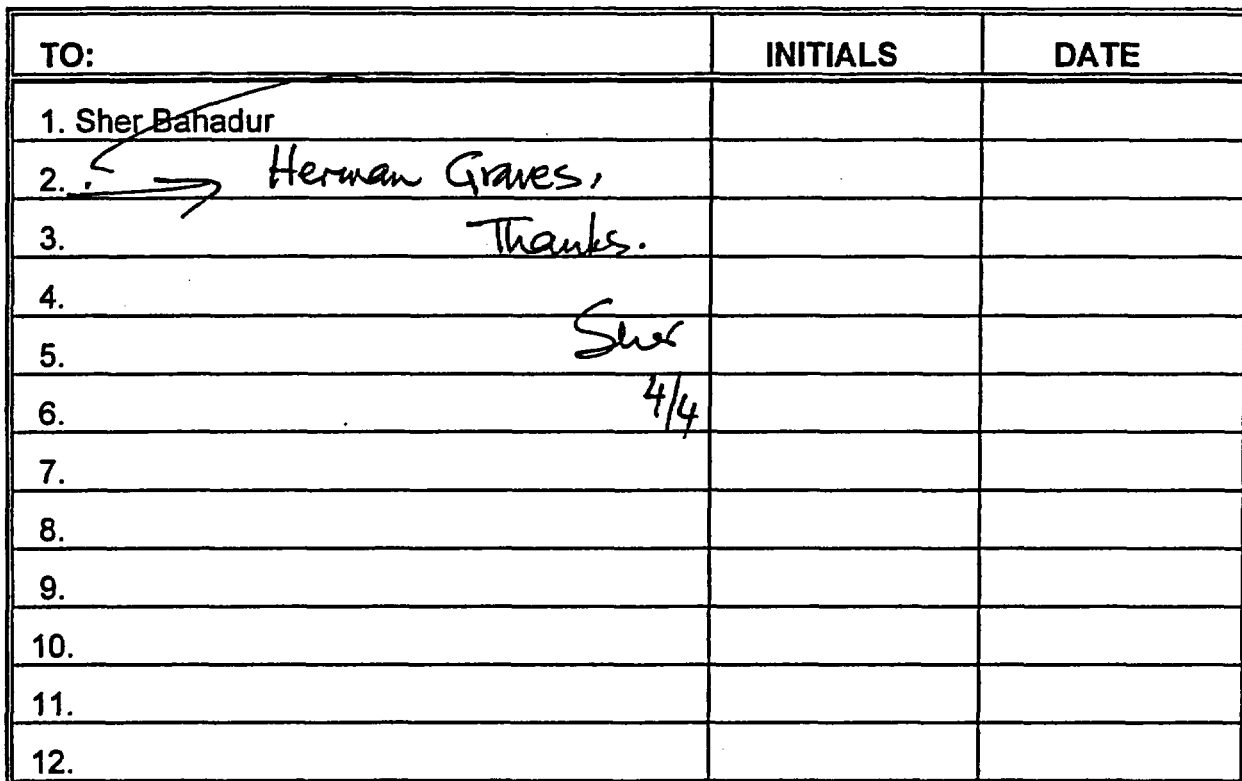 TO: INITIALS DATE
1. Sher Bahadur
2. Herman Graves,
3. Thanks.
4.
5. Sher
6. 4/4
7.
8.
9.
10.
11.
12.